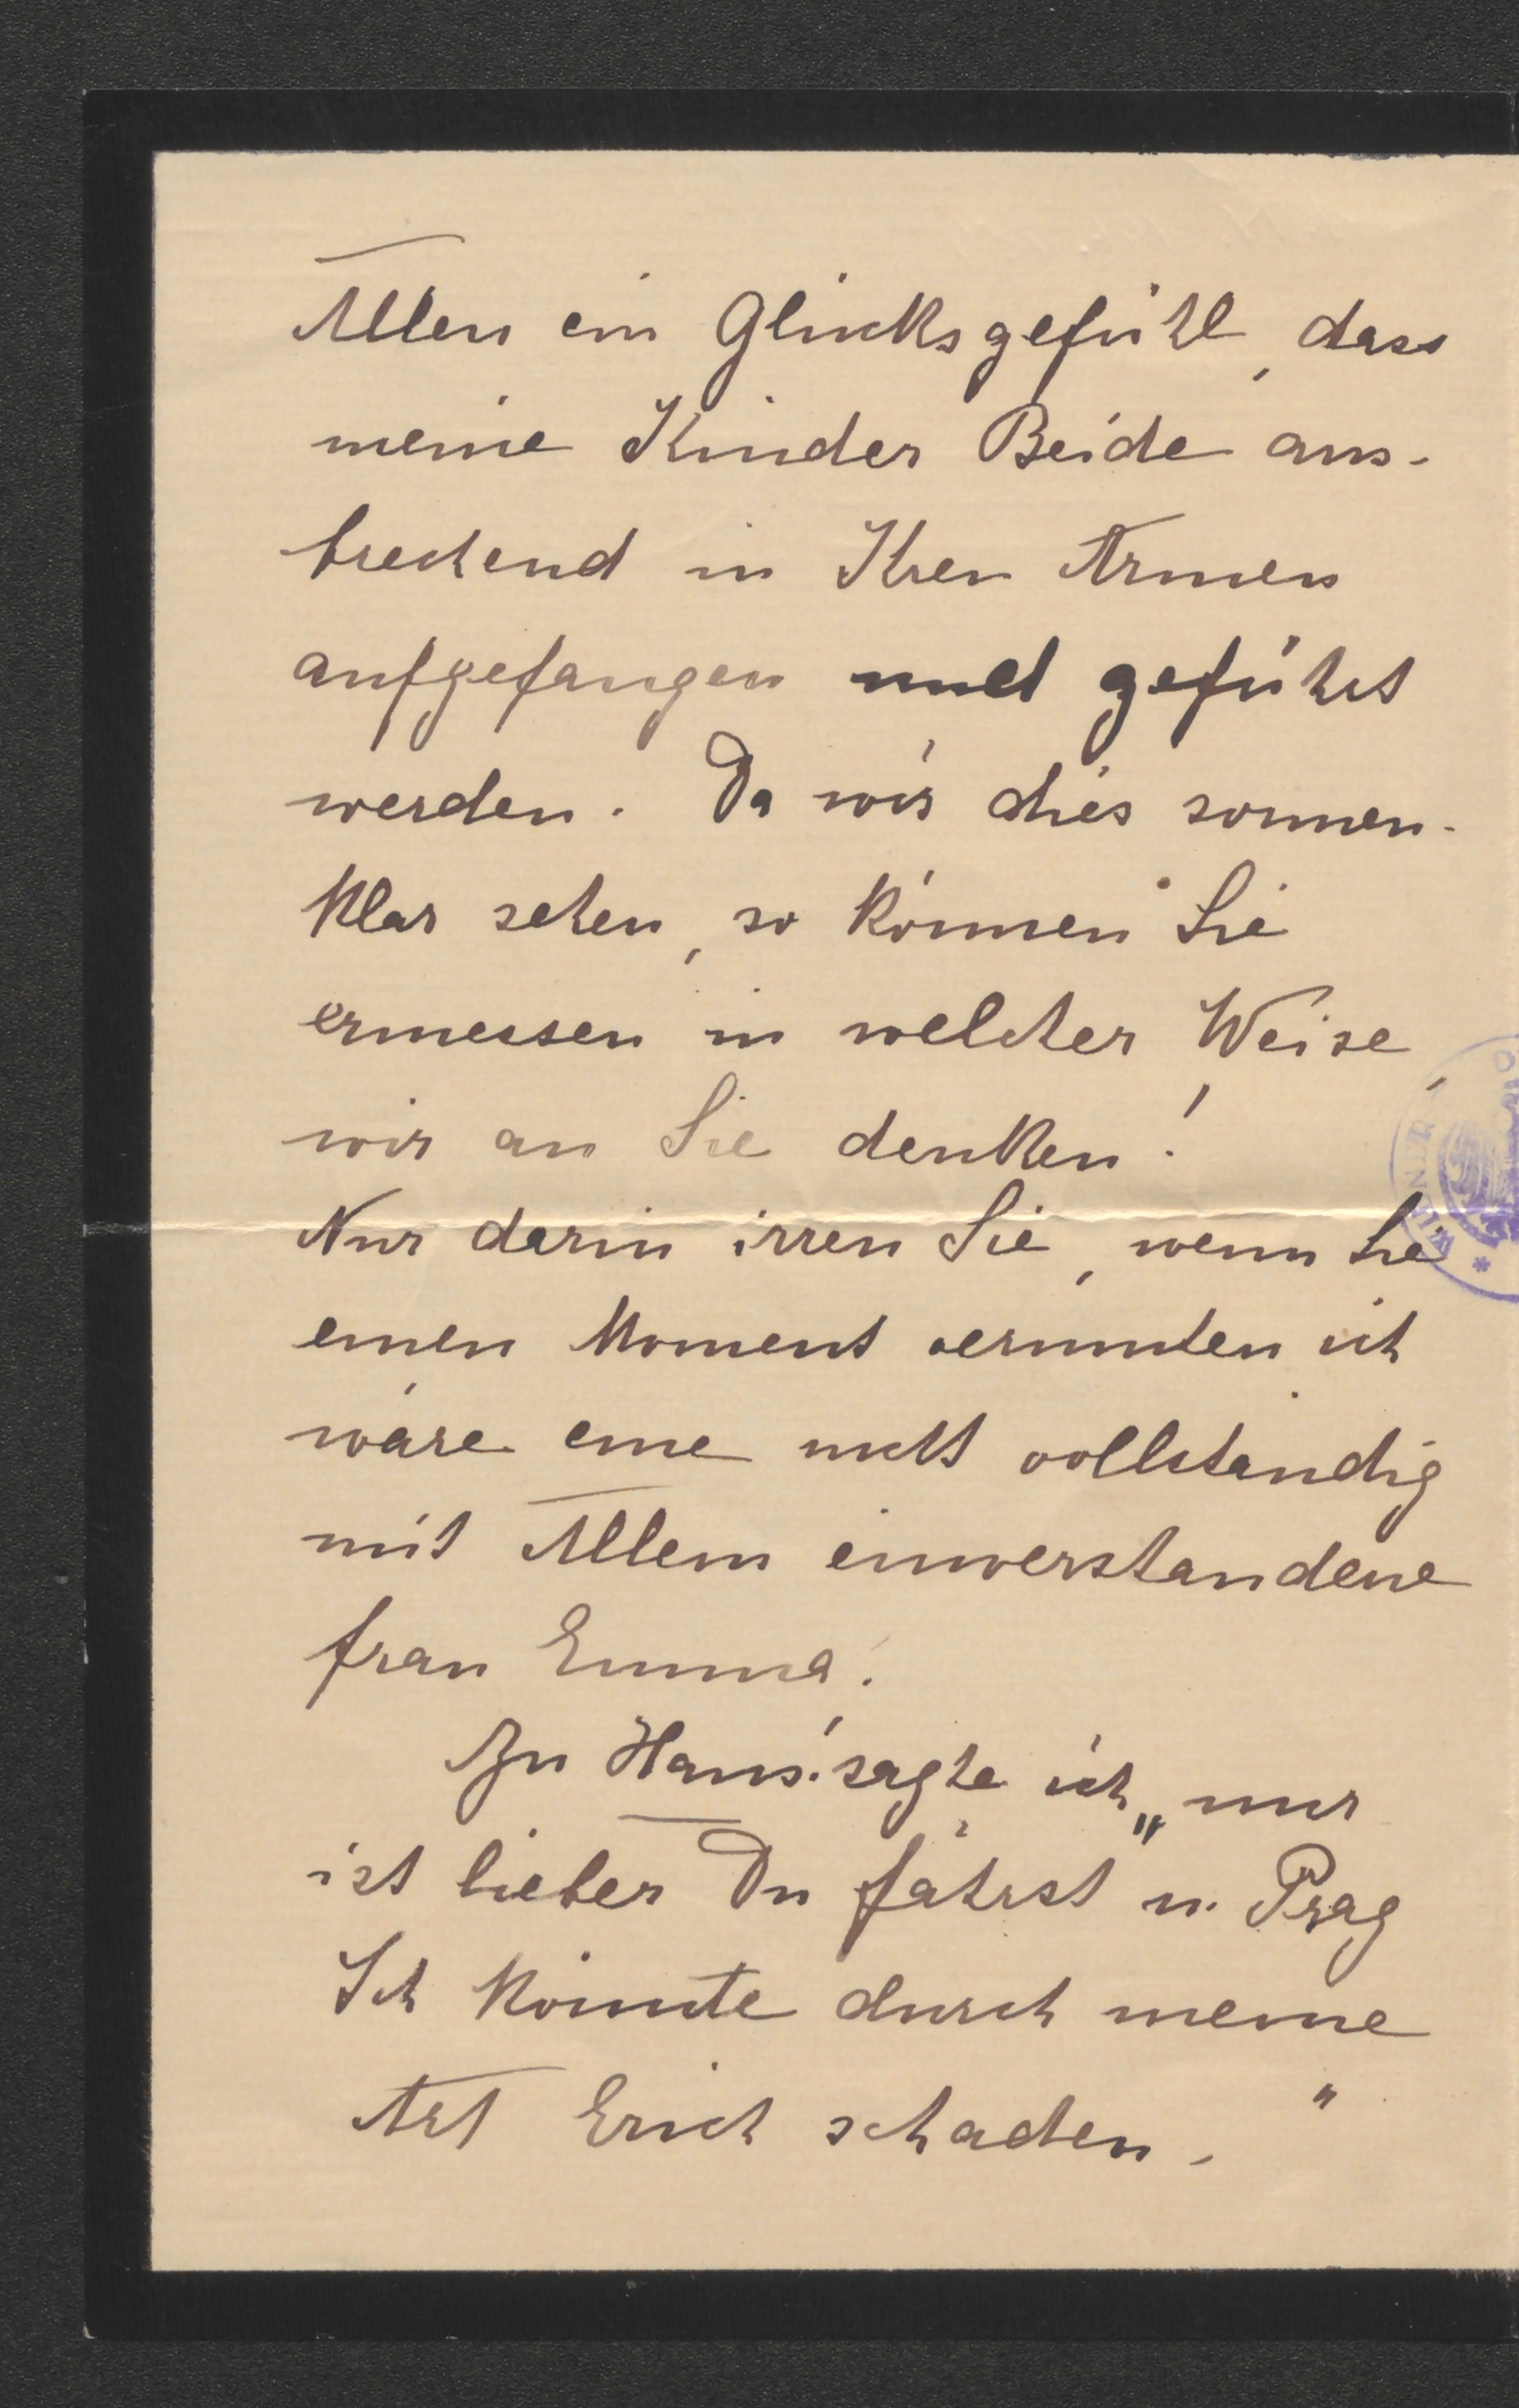 Allen ein Glücksgefühl, dass
meine Kinder Beide aus-
brechend in Ihren Armen
aufgefangen und geführt
werden. Da wir dies sonnen-
klar sehen, so können Sie
ermessen in welcher Weise,
wir an Sie denken!
Nur darin irren Sie, wenn Sie
einen Moment vermuten ich
wäre eine nicht vollständig
mit Allem einverstandene
Frau Emma!
Zu Hans sagte ich „mir
ist lieber Du fährst n. Prag
Ich könnte durch meine
Art Erich schaden."
WIENER